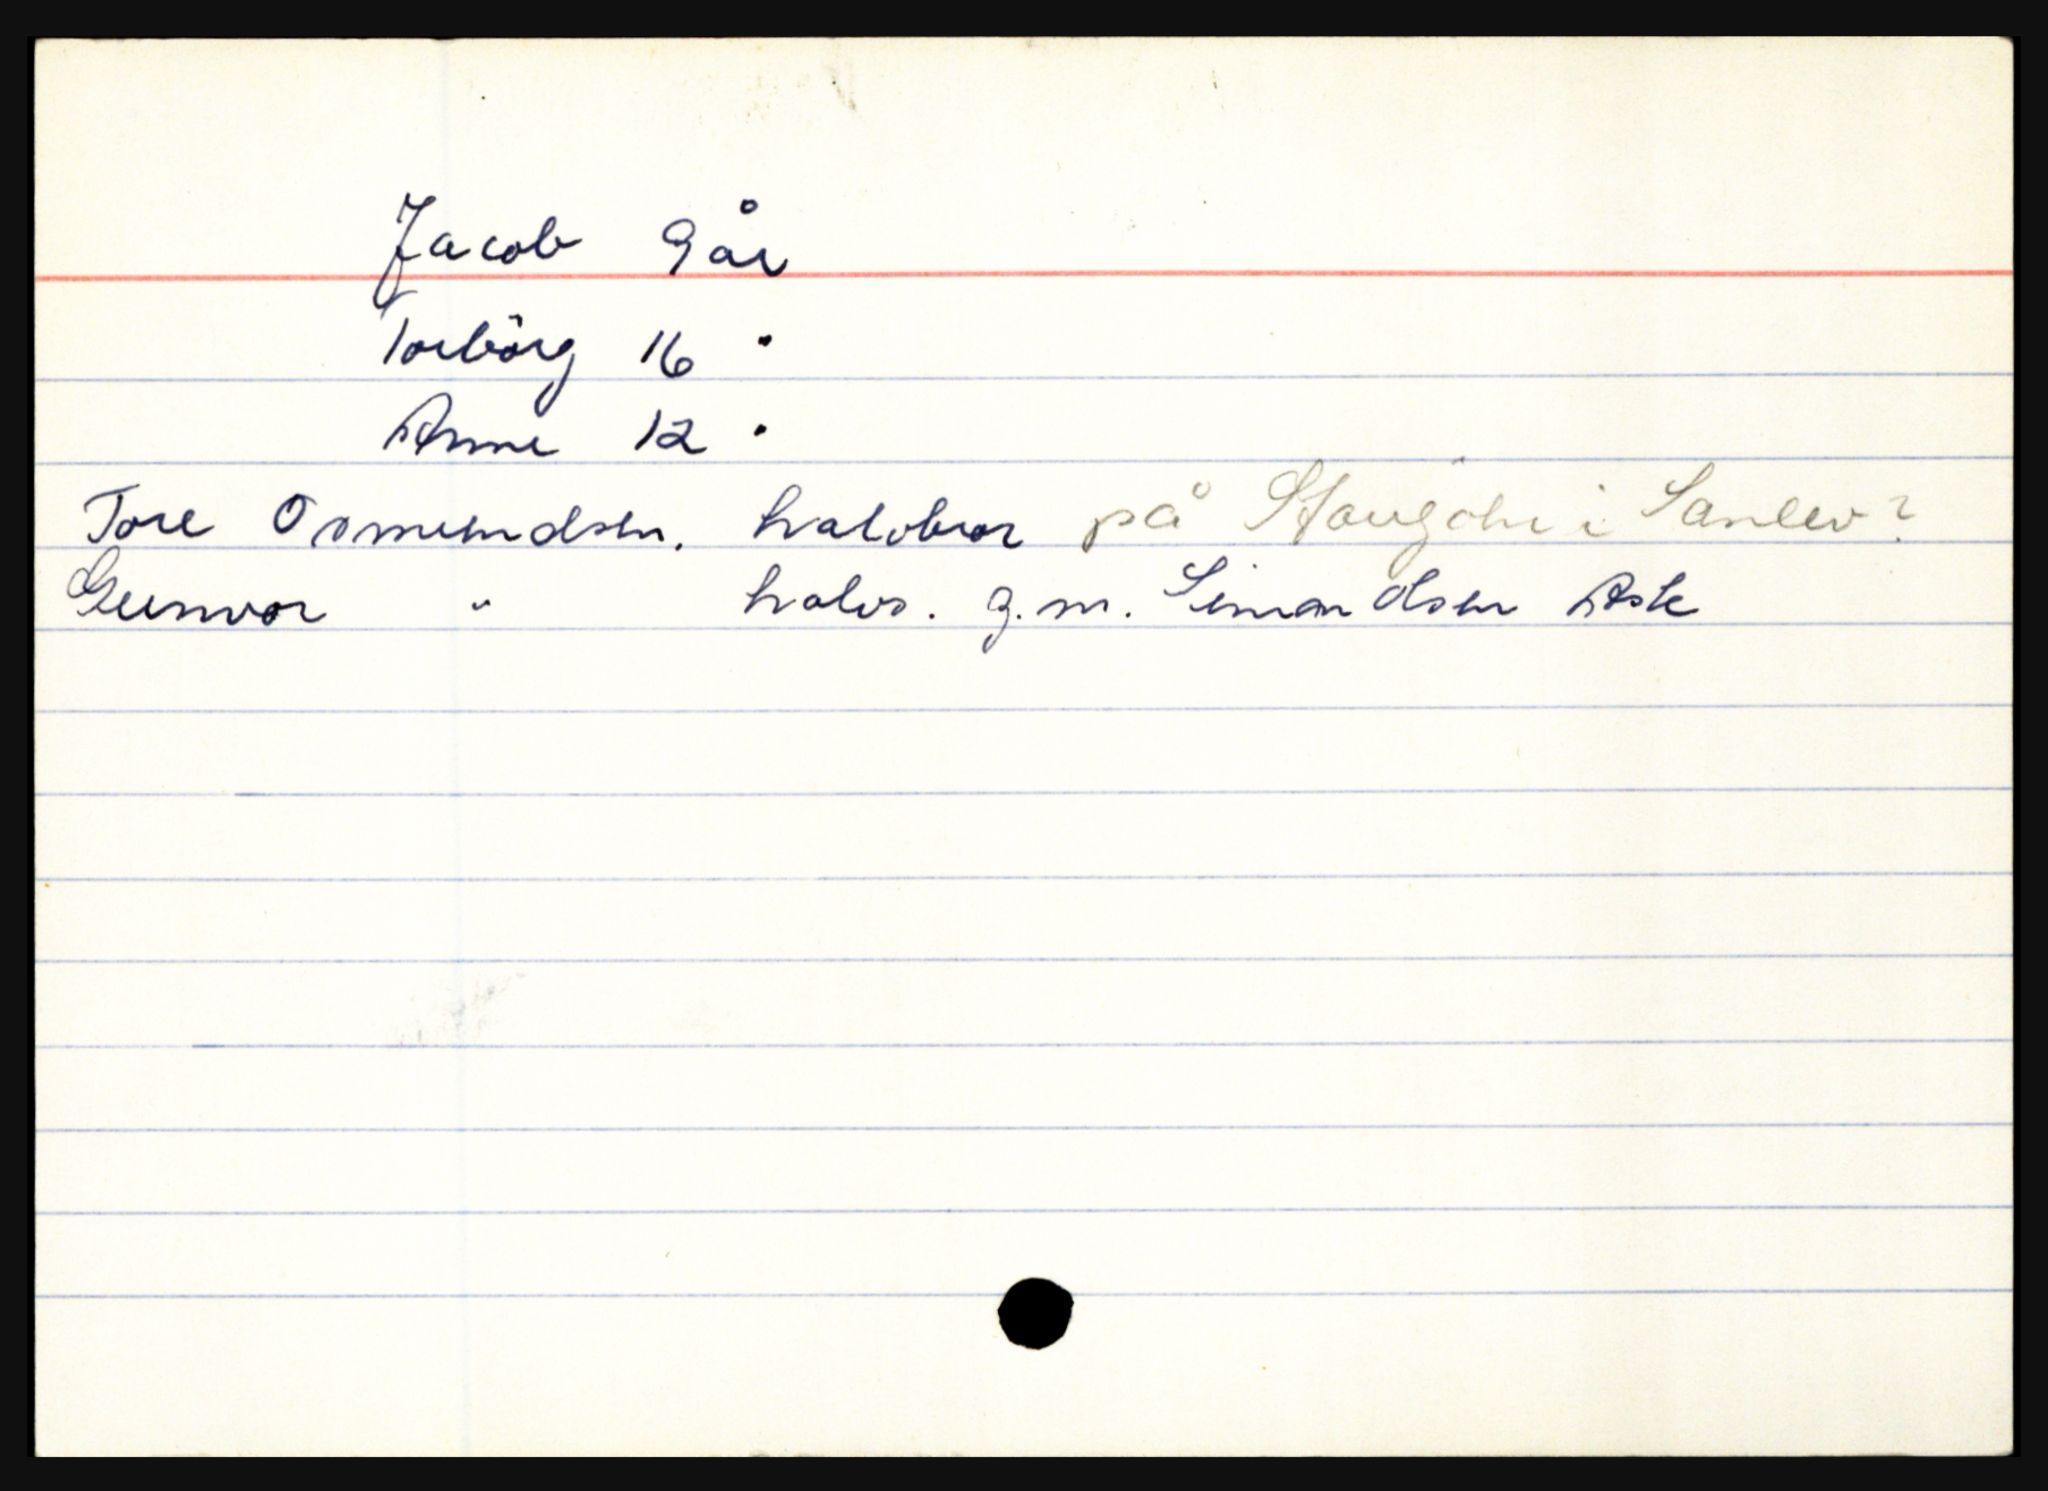 Jacob 9 år
Torbörg 16 "
Anne 12 "
Tore Osmundsen. halvbror på i Sanlev?
Gunvor " halvs. g.m. Simon Olsen Ask